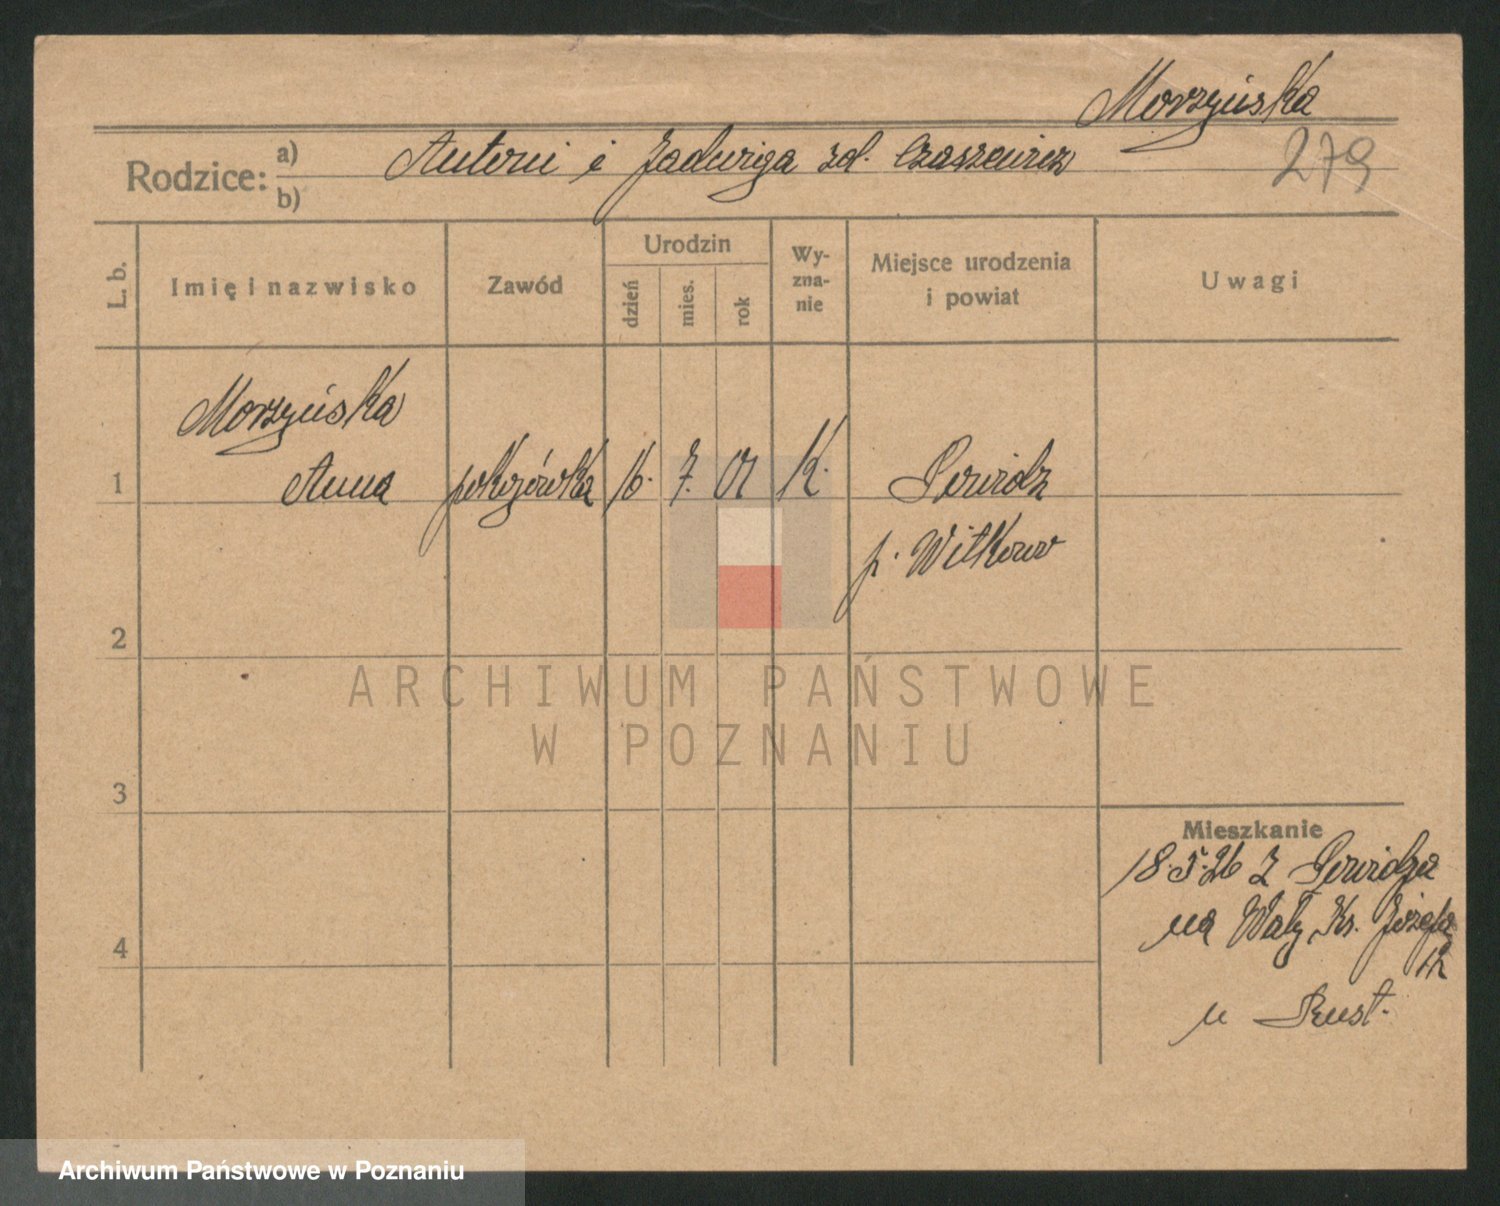 Morzyńska
Rodzice: a) Antoni i Jadwiga zd. Czaszewicz
b)
279
L. b.
Imię i nazwisko
Zawód
Urodzin
dzień
mies.
rok
Wy-
zna-
nie
Miejsce urodzenia
i powiat
Uwagi
Morzyńska
1 Anna pokojówka 16. 7. 01 K. Powidz
p. Witkowo
2
ARCHIWUM PAŃSTWOWE
W POZNANIU
3
Mieszkanie
18.5.26 z Powidza
na Wały Ks. Józefa
4
u Rust.
Archiwum Państwowe w Poznaniu